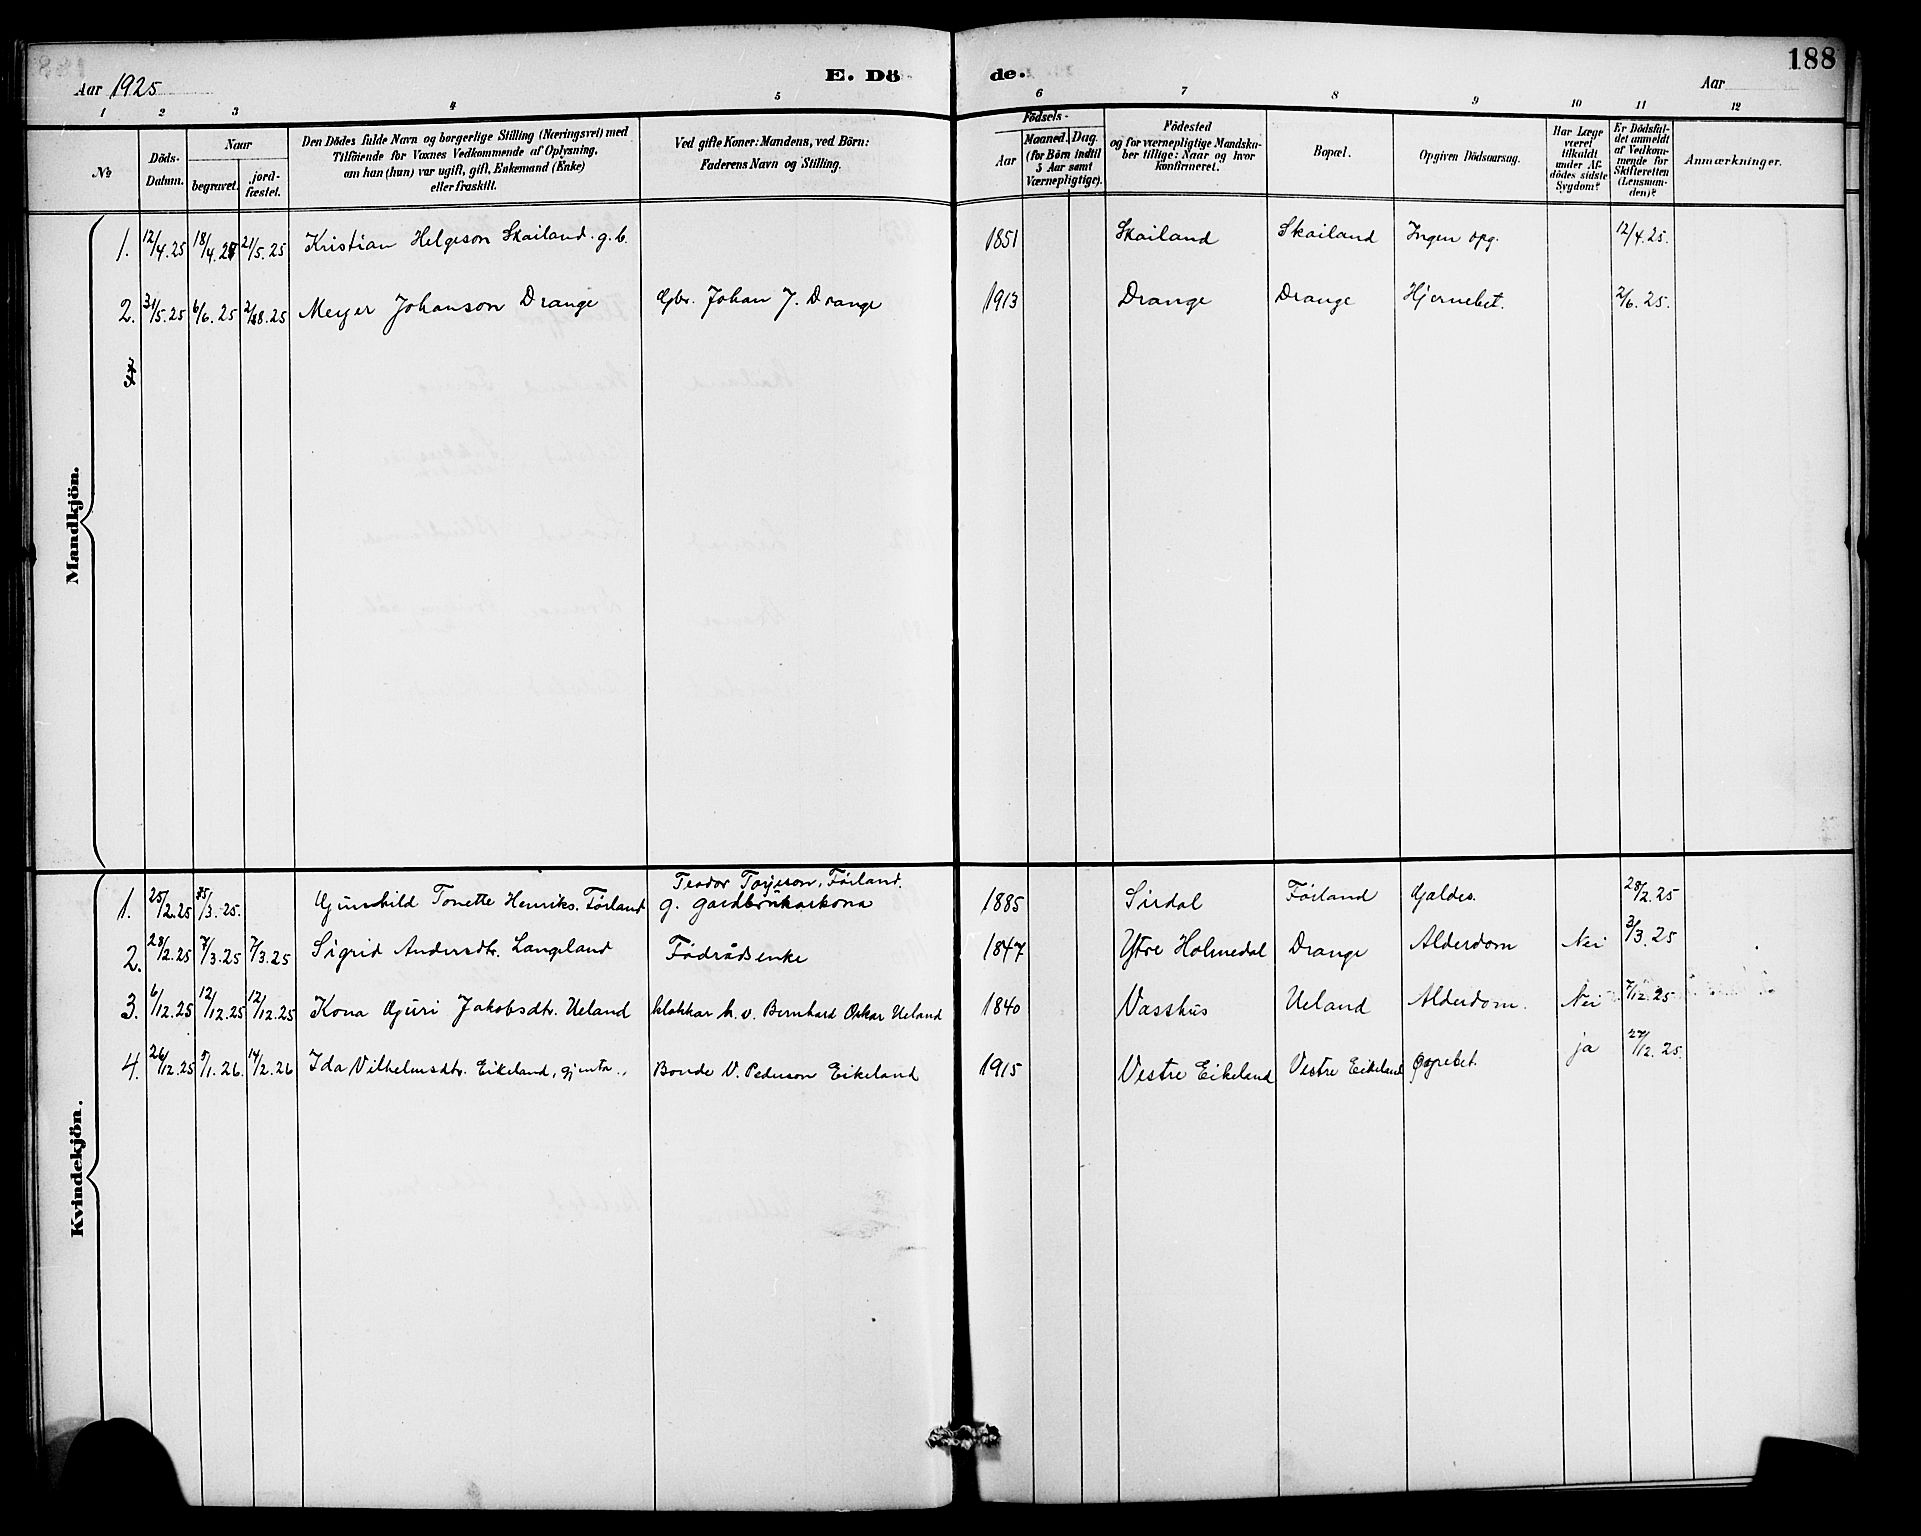 188
Aar 1925
E. Döde.
Aar
1 2 3 4 5 6 7 8 9 10 11 12
№
Döds-Datum.
Naar
begravet.
jord-fæstet.
Den Dödes fulde Navn og borgerlige Stilling (Næringsvei) med
Tilföiende for Voxnes Vedkommende af Oplysning,
om han (hun) var ugift, gift, Enkemand (Enke)
eller fraskilt.
Ved gifte Koner: Mandens, ved Börn:
Faderens Navn og Stilling.
Födsels-
Aar
Maaned. Dag.
(for Börn indtil
5 Aar samt
Værnepligtige).
Födested
og for værnepligtige Mandska-
ber tillige: Naar og hvor
konfirmeret.
Bopæl.
Opgiven Dödsaarsag.
Har Læge
været
tilkaldt
under Af-
dödes sidste
Sygdom?
Er Dödsfal-
det anmeldt
af Vedkom-
mende for
Skifteretten
(Lensman-
den)?
Anmærkninger.
Mandkjön.
1. 12/4.25 18/4.25 21/5.25 Kristian Helgeson Skailand. g.b. 1851 Skailand Skailand Ingen opg. 12/4.25.
2. 31/5.25 6/6.25 2/8.25 Meyer Johanson Drange Gbr. Johan J. Drange 1913 Drange Drange Hjernebet. 2/6.25.
Kvindekjön.
Teodor Torjeson, Förland.
1. 25/2.25 /3.25. Gunhild Tonette Henriks. Förland g. gardbrukarkona 1885 Sirdal Förland Galdes. 28/2.25
2. 28/2.25 7/3.25 7/3.25 Sigrid Andersdtr. Langeland Födrådsenke 1847 Ytre Holmedal Drange Alderdom Nei 3/3.25
3. 6/12.25 12/12.25 12/12.25 Kona Guri Jakobsdtr. Ueland klokkar k. v. Bernhard Oskar Ueland 1840 Vasshus Ueland Alderdom. Nei 7/12.25
4. 26/12.25 5/1.26. 14/2.26 Ida Vilhelmsdtr. Eikeland, gjenta., Bonde V. Pederson Eikeland 1915 Vestre Eikeland Vestre Eikeland ja 27/12.25.